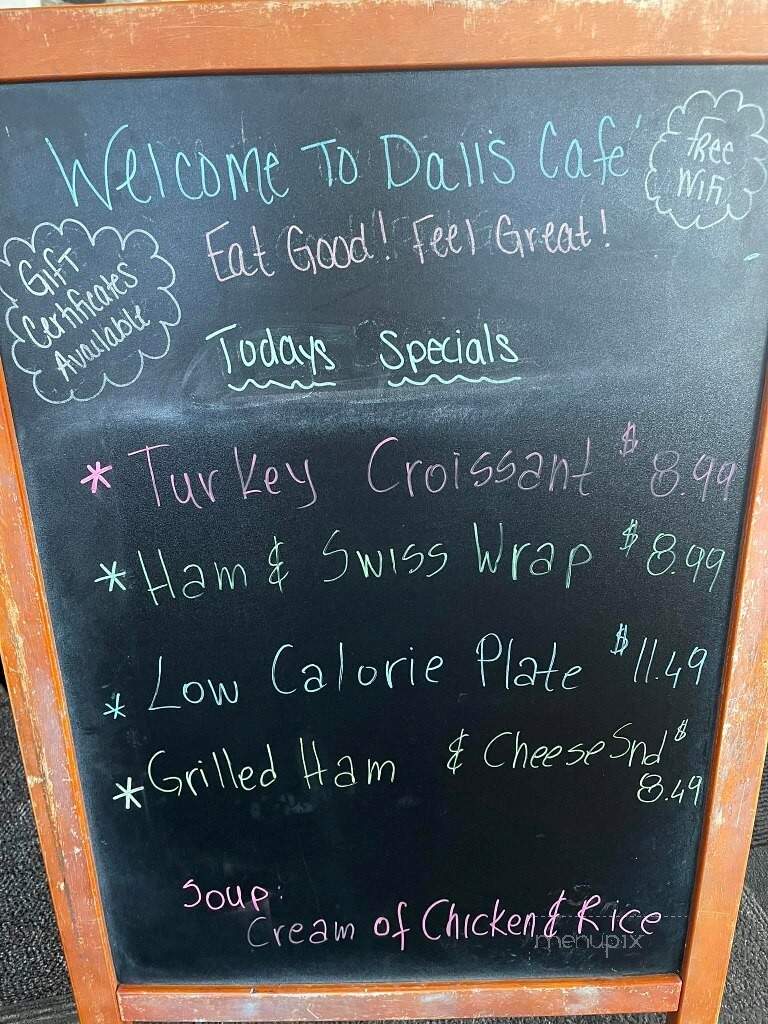 Welcome To Dall's Café
Free
WiFi
Eat Good! Feel Great!
Gift
Certificates
Available
Todays Specials
* Turkey Croissant $8.99
* Ham & Swiss Wrap $8.99
* Low Calorie Plate $11.49
* Grilled Ham & Cheese Snd $
8.49
Soup:
Cream of Chicken & Rice
menupix